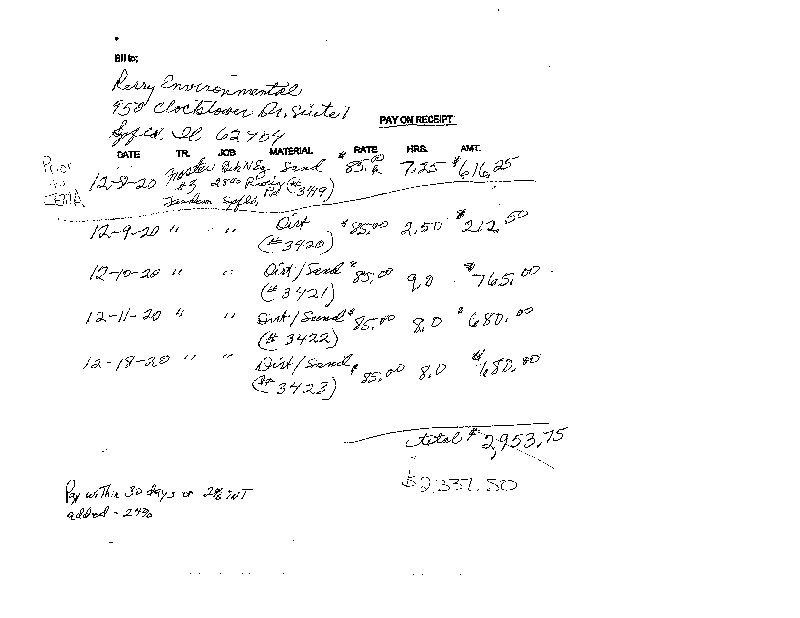 Bill to:
Perry Environmental
950 Clocktower Dr. Suite 1
Spfld. Il. 62704
PAY ON RECEIPT
DATE TR. JOB MATERIAL RATE HRS. AMT.
Prior to
12-8-20 Master Sand $85.00 7.25 $616.25
#3 2500 (#3419)
Tandem Spfld.
12-9-20 " " Dirt $85.00 2.50 $212.50
(#3420)
12-10-20 " " Dirt/Sand $85.00 9.0 $765.00
(#3421)
12-11-20 " " Dirt/Sand $85.00 8.0 $680.00
(#3422)
12-18-20 " " Dirt/Sand $85.00 8.0 $680.00
(#3423)
total $2,953.75
$2,337.50
Pay within 30 days or 2% INT
added - 24%